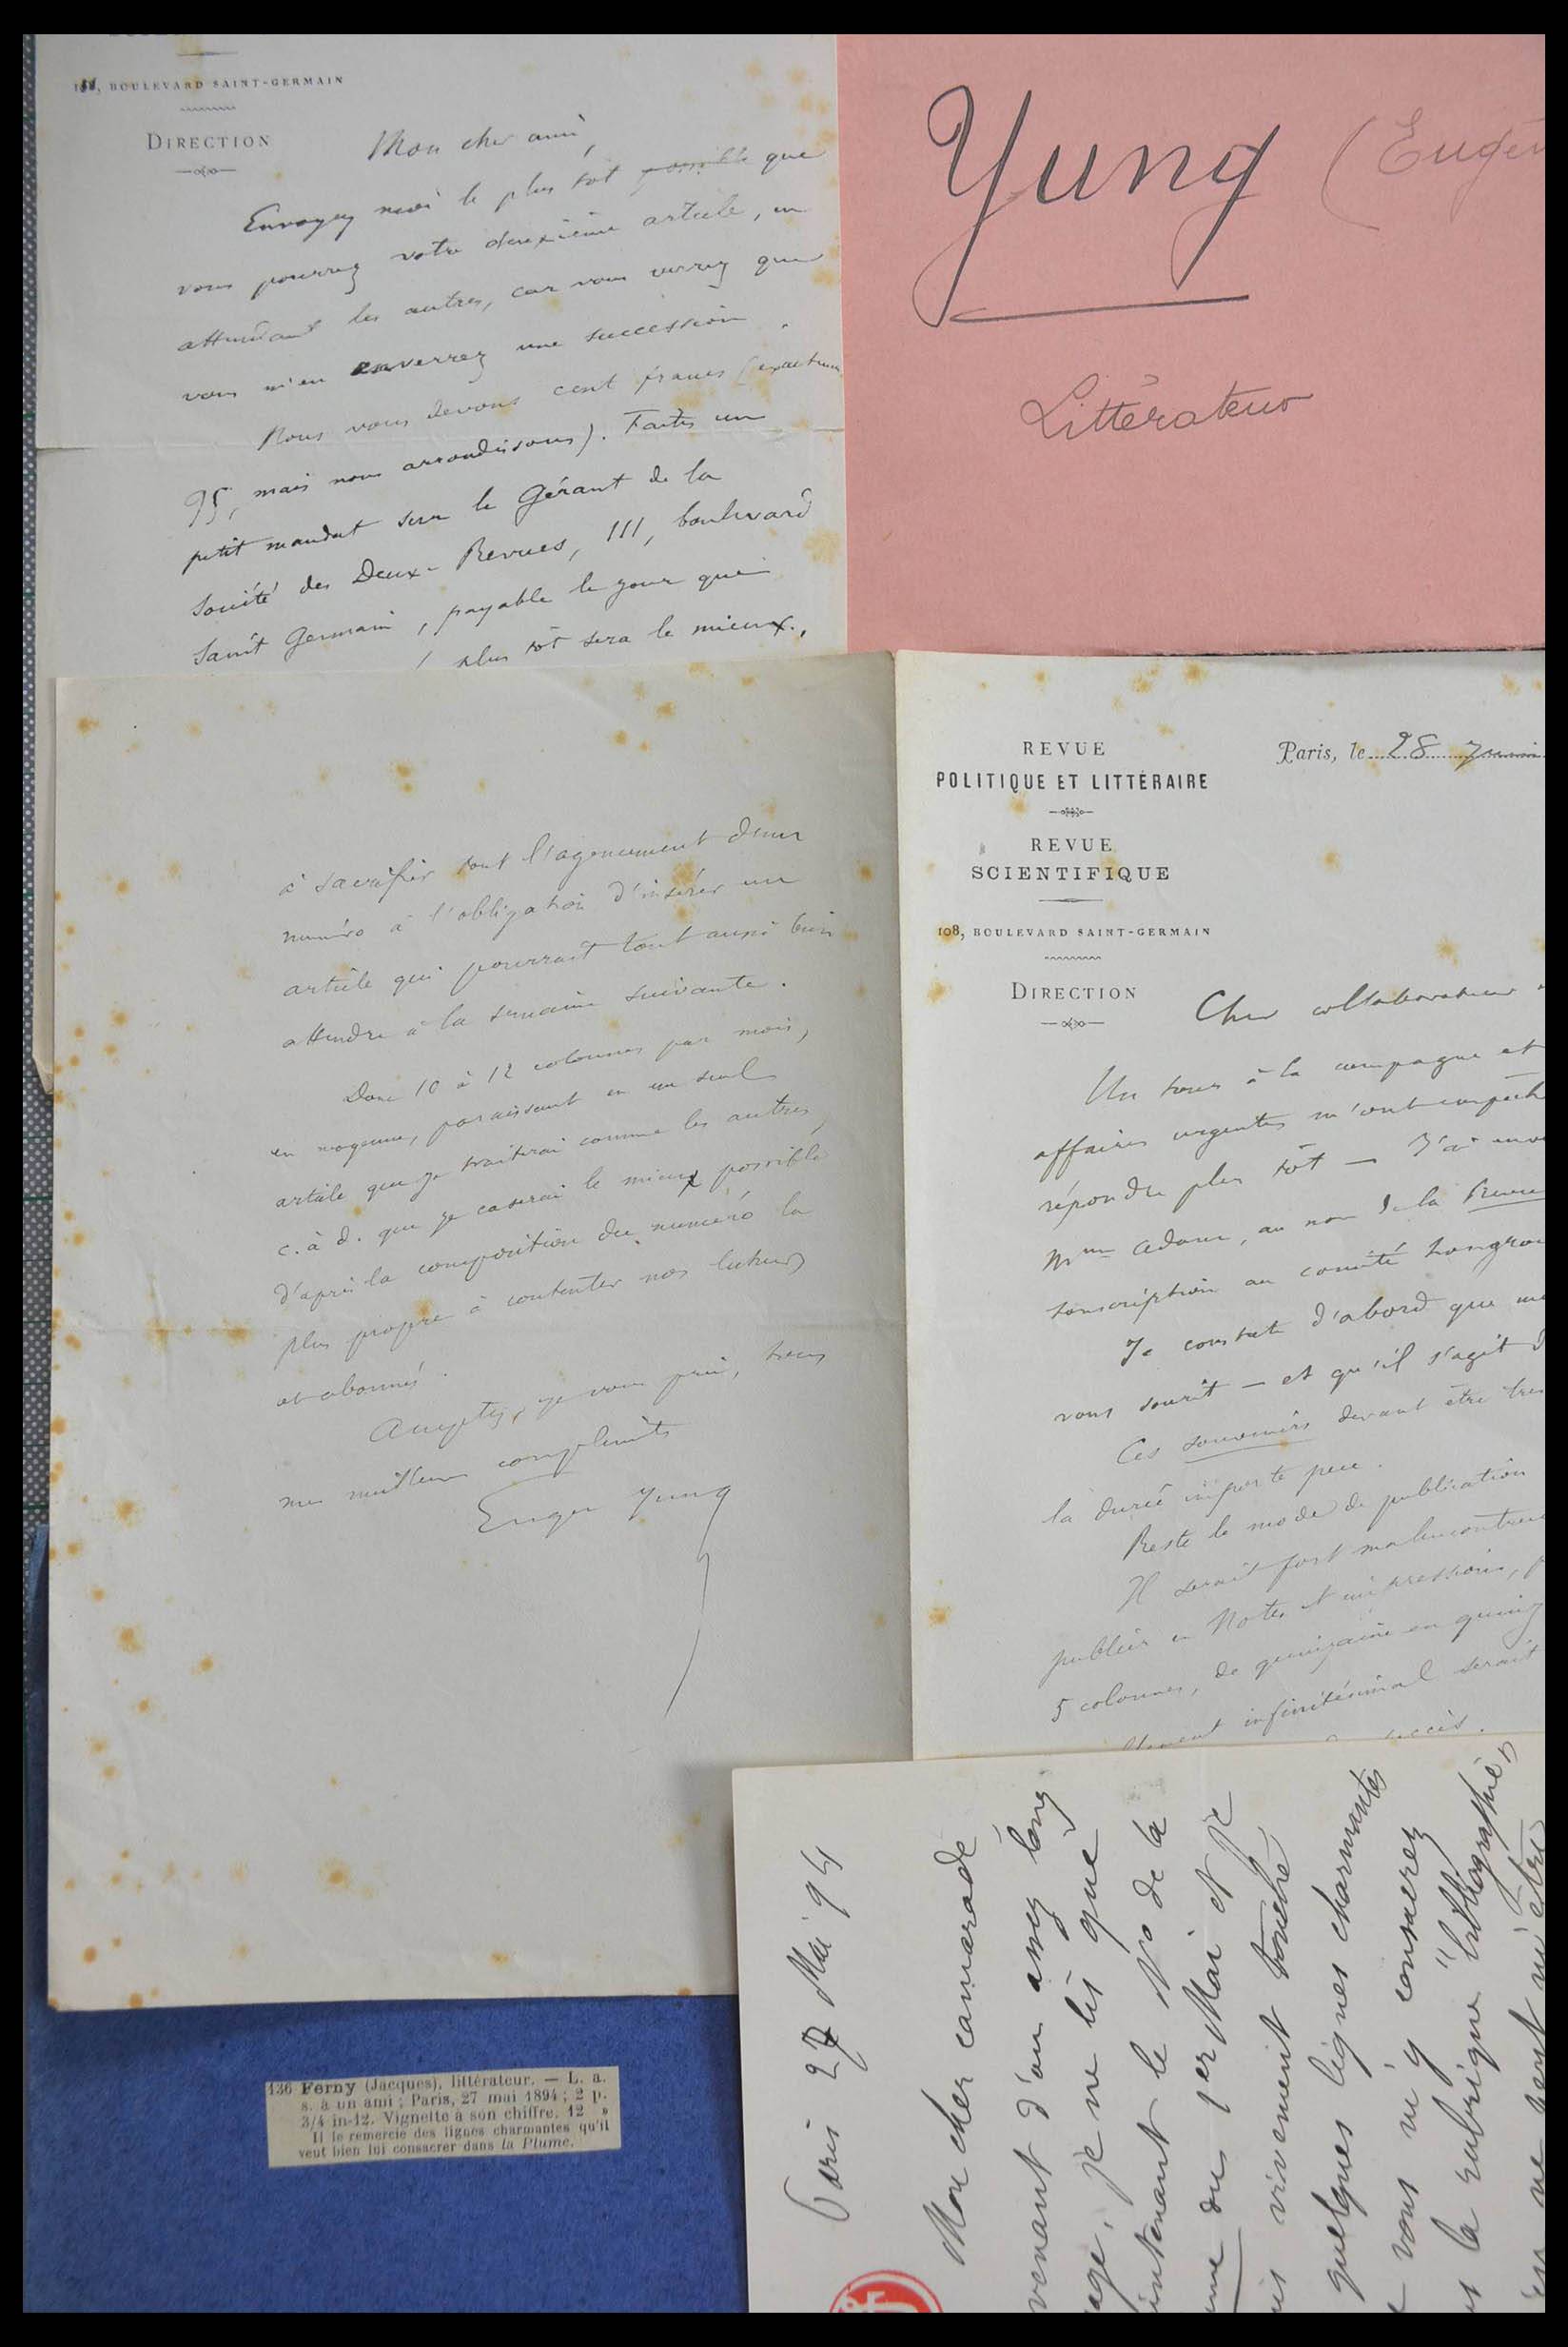 108, BOULEVARD SAINT-GERMAIN
DIRECTION
Mon cher ami,
Envoyez moi le plus tôt possible que
vous pourrez votre deuxième article, en
attendant les autres, car vous verrez que
vous m'en enverrez une succession
Nous vous devons cent francs (exactem
95, mais nous arrondissons). Faites un
petit mandat sur le Gérant de la
Société des Deux-Revues, 111, boulevard
Saint Germain, payable le jour qui
plus tôt sera le mieux.,
Yung (Eugèn
Littérateur
à sacrifier tout l'agencement d'un
numéro à l'obligation d'insérer un
article qui pourrait tout aussi bien
attendre à la semaine suivante.
Donc 10 à 12 colonnes par mois,
en moyenne, paraissant en un seul
article que je traiterai comme les autres,
c. à d. que je caserai le mieux possible
d'après la composition du numéro la
plus propre à contenter nos lecteurs
et abonnés.
Acceptez, je vous prie, tous
mes meilleurs compliments
Eugène Yung
REVUE
POLITIQUE ET LITTÉRAIRE
REVUE
SCIENTIFIQUE
108, BOULEVARD SAINT-GERMAIN
DIRECTION
Paris, le 28 juin
Cher collaborateur
Un tour à la campagne et
affaires urgentes m'ont empêch
répondre plus tôt — J'ai env
Mme Adam, au nom de la Revue
souscription au comité hongroi
Je constate d'abord que
vous sourit — et qu'il s'agit d
Ces souvenirs devant être
la durée importe peu.
Reste le mode de publication
Il serait fort malencontreu
publier en Notes et impressions,
5 colonnes, de quinzaine en quinz
infinitésimal serait
succès.
Paris 27 Mai 94
Mon cher camarade
venant d'un assez long
age, je ne lis que
intenant le No de la
ume du 1er Mai et je
is vivement touché
quelques lignes charmantes
vous m'y consacrez
la rubrique "bibliographie,,
ne peut m'être
136 Ferny (Jacques), littérateur. — L. a.
s. à un ami ; Paris, 27 mai 1894 ; 2 p.
3/4 in-12. Vignette à son chiffre. 12 »
Il le remercie des lignes charmantes qu'il
veut bien lui consacrer dans la Plume.